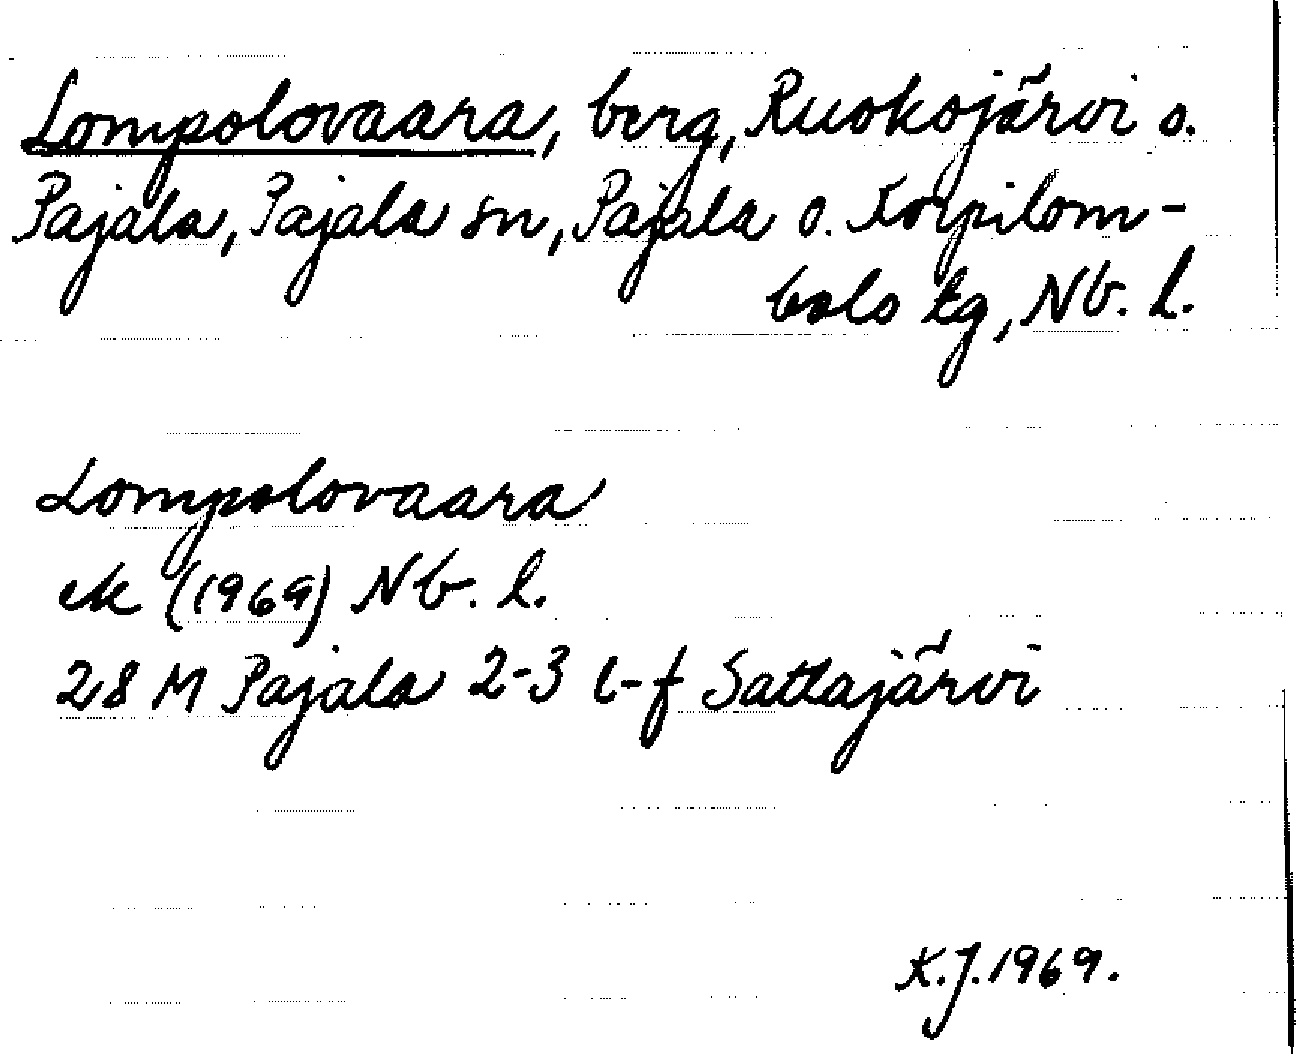 Lompolovaara, berg, Ruokojärvi o.
Pajala, Pajala sn, Pajala o. Korpilom-
bolo tg, Nb. l.
Lompolovaara
ek (1969) Nb. l.
28 M Pajala 2-3 e-f Sattajärvi
K.J. 1969.